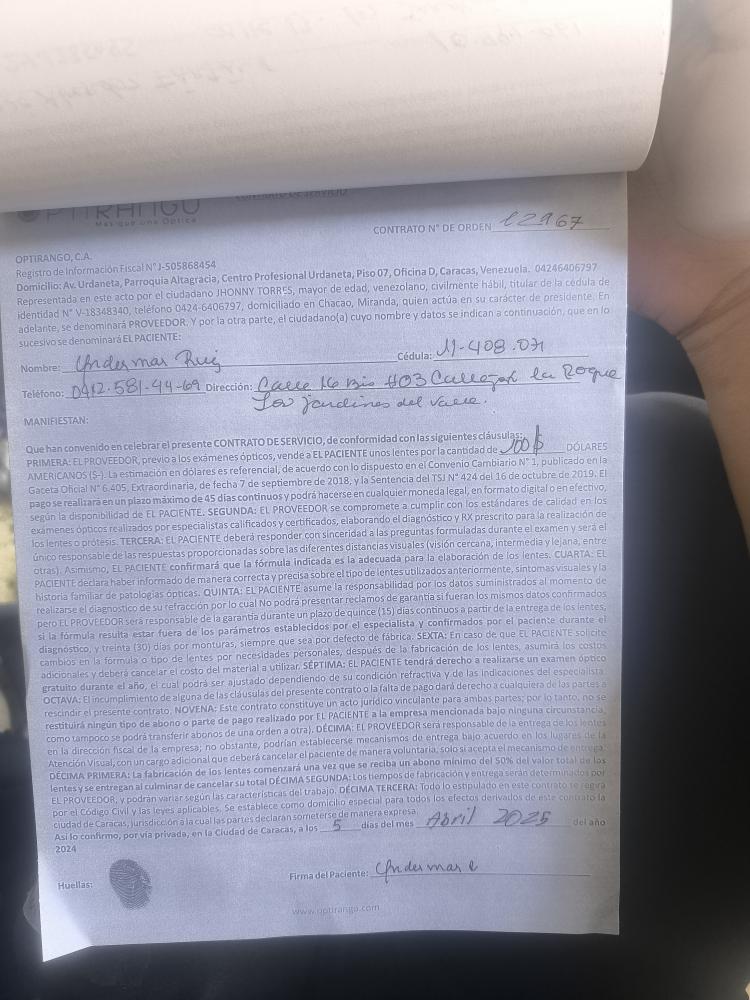 OPTIRANGO
Mas que una Optica
CONTRATO DE SERVICIO
CONTRATO N° DE ORDEN 12967
OPTIRANGO, C.A.
Registro de Información Fiscal N° J-505868454
Domicilio: Av. Urdaneta, Parroquia Altagracia, Centro Profesional Urdaneta, Piso 07, Oficina D, Caracas, Venezuela. 04246406797
Representada en este acto por el ciudadano JHONNY TORRES, mayor de edad, venezolano, civilmente hábil, titular de la cédula de
identidad N° V-18348340, teléfono 0424-6406797, domiciliado en Chacao, Miranda, quien actúa en su carácter de presidente. En
adelante, se denominará PROVEEDOR. Y por la otra parte, el ciudadano(a) cuyo nombre y datos se indican a continuación, que en lo
sucesivo se denominará EL PACIENTE:
Nombre: Yndermar Ruiz Cédula: 11-408.071
Teléfono: 0412.581-44-69 Dirección: Calle 16 Bis #03 Callejon la Roque
Los jardines del Valle.
MANIFIESTAN:
Que han convenido en celebrar el presente CONTRATO DE SERVICIO, de conformidad con las siguientes cláusulas:
PRIMERA: EL PROVEEDOR, previo a los exámenes ópticos, vende a EL PACIENTE unos lentes por la cantidad de 100$ DÓLARES
AMERICANOS ($-). La estimación en dólares es referencial, de acuerdo con lo dispuesto en el Convenio Cambiario N° 1, publicado en la
Gaceta Oficial N° 6.405, Extraordinaria, de fecha 7 de septiembre de 2018, y la Sentencia del TSJ N° 424 del 16 de octubre de 2019. El
pago se realizará en un plazo máximo de 45 días continuos y podrá hacerse en cualquier moneda legal, en formato digital o en efectivo,
según la disponibilidad de EL PACIENTE. SEGUNDA: EL PROVEEDOR se compromete a cumplir con los estándares de calidad en los
exámenes ópticos realizados por especialistas calificados y certificados, elaborando el diagnóstico y RX prescrito para la realización de
los lentes o prótesis. TERCERA: EL PACIENTE deberá responder con sinceridad a las preguntas formuladas durante el examen y será el
único responsable de las respuestas proporcionadas sobre las diferentes distancias visuales (visión cercana, intermedia y lejana, entre
otras). Asimismo, EL PACIENTE confirmará que la fórmula indicada es la adecuada para la elaboración de los lentes. CUARTA: EL
PACIENTE declara haber informado de manera correcta y precisa sobre el tipo de lentes utilizados anteriormente, síntomas visuales y la
historia familiar de patologías ópticas. QUINTA: EL PACIENTE asume la responsabilidad por los datos suministrados al momento de
realizarse el diagnostico de su refracción por lo cual No podrá presentar reclamos de garantía si fueran los mismos datos confirmados
pero EL PROVEEDOR será responsable de la garantía durante un plazo de quince (15) días continuos a partir de la entrega de los lentes,
si la fórmula resulta estar fuera de los parámetros establecidos por el especialista y confirmados por el paciente durante el
diagnóstico, y treinta (30) días por monturas, siempre que sea por defecto de fábrica. SEXTA: En caso de que EL PACIENTE solicite
cambios en la fórmula o tipo de lentes por necesidades personales, después de la fabricación de los lentes, asumirá los costos
adicionales y deberá cancelar el costo del material a utilizar. SÉPTIMA: EL PACIENTE tendrá derecho a realizarse un examen óptico
gratuito durante el año, el cual podrá ser ajustado dependiendo de su condición refractiva y de las indicaciones del especialista.
OCTAVA: El incumplimiento de alguna de las cláusulas del presente contrato o la falta de pago dará derecho a cualquiera de las partes a
rescindir el presente contrato. NOVENA: Este contrato constituye un acto jurídico vinculante para ambas partes; por lo tanto, no se
restituirá ningún tipo de abono o parte de pago realizado por EL PACIENTE a la empresa mencionada bajo ninguna circunstancia,
como tampoco se podrá transferir abonos de una orden a otra). DÉCIMA: EL PROVEEDOR será responsable de la entrega de los lentes
en la dirección fiscal de la empresa; no obstante, podrían establecerse mecanismos de entrega bajo acuerdo en los lugares de la
Atención Visual, con un cargo adicional que deberá cancelar el paciente de manera voluntaria, solo si acepta el mecanismo de entrega.
DÉCIMA PRIMERA: La fabricación de los lentes comenzará una vez que se reciba un abono mínimo del 50% del valor total de los
lentes y se entregan al culminar de cancelar su total DÉCIMA SEGUNDA: Los tiempos de fabricación y entrega serán determinados por
EL PROVEEDOR, y podrán variar según las características del trabajo. DÉCIMA TERCERA: Todo lo estipulado en este contrato se regirá
por el Código Civil y las leyes aplicables. Se establece como domicilio especial para todos los efectos derivados de este contrato la
ciudad de Caracas, jurisdicción a la cual las partes declaran someterse de manera expresa.
Así lo confirmo, por vía privada, en la Ciudad de Caracas, a los 5 días del mes Abril 2025 del año
2024
Huellas:
Firma del Paciente: Yndermar R
www.optirango.com